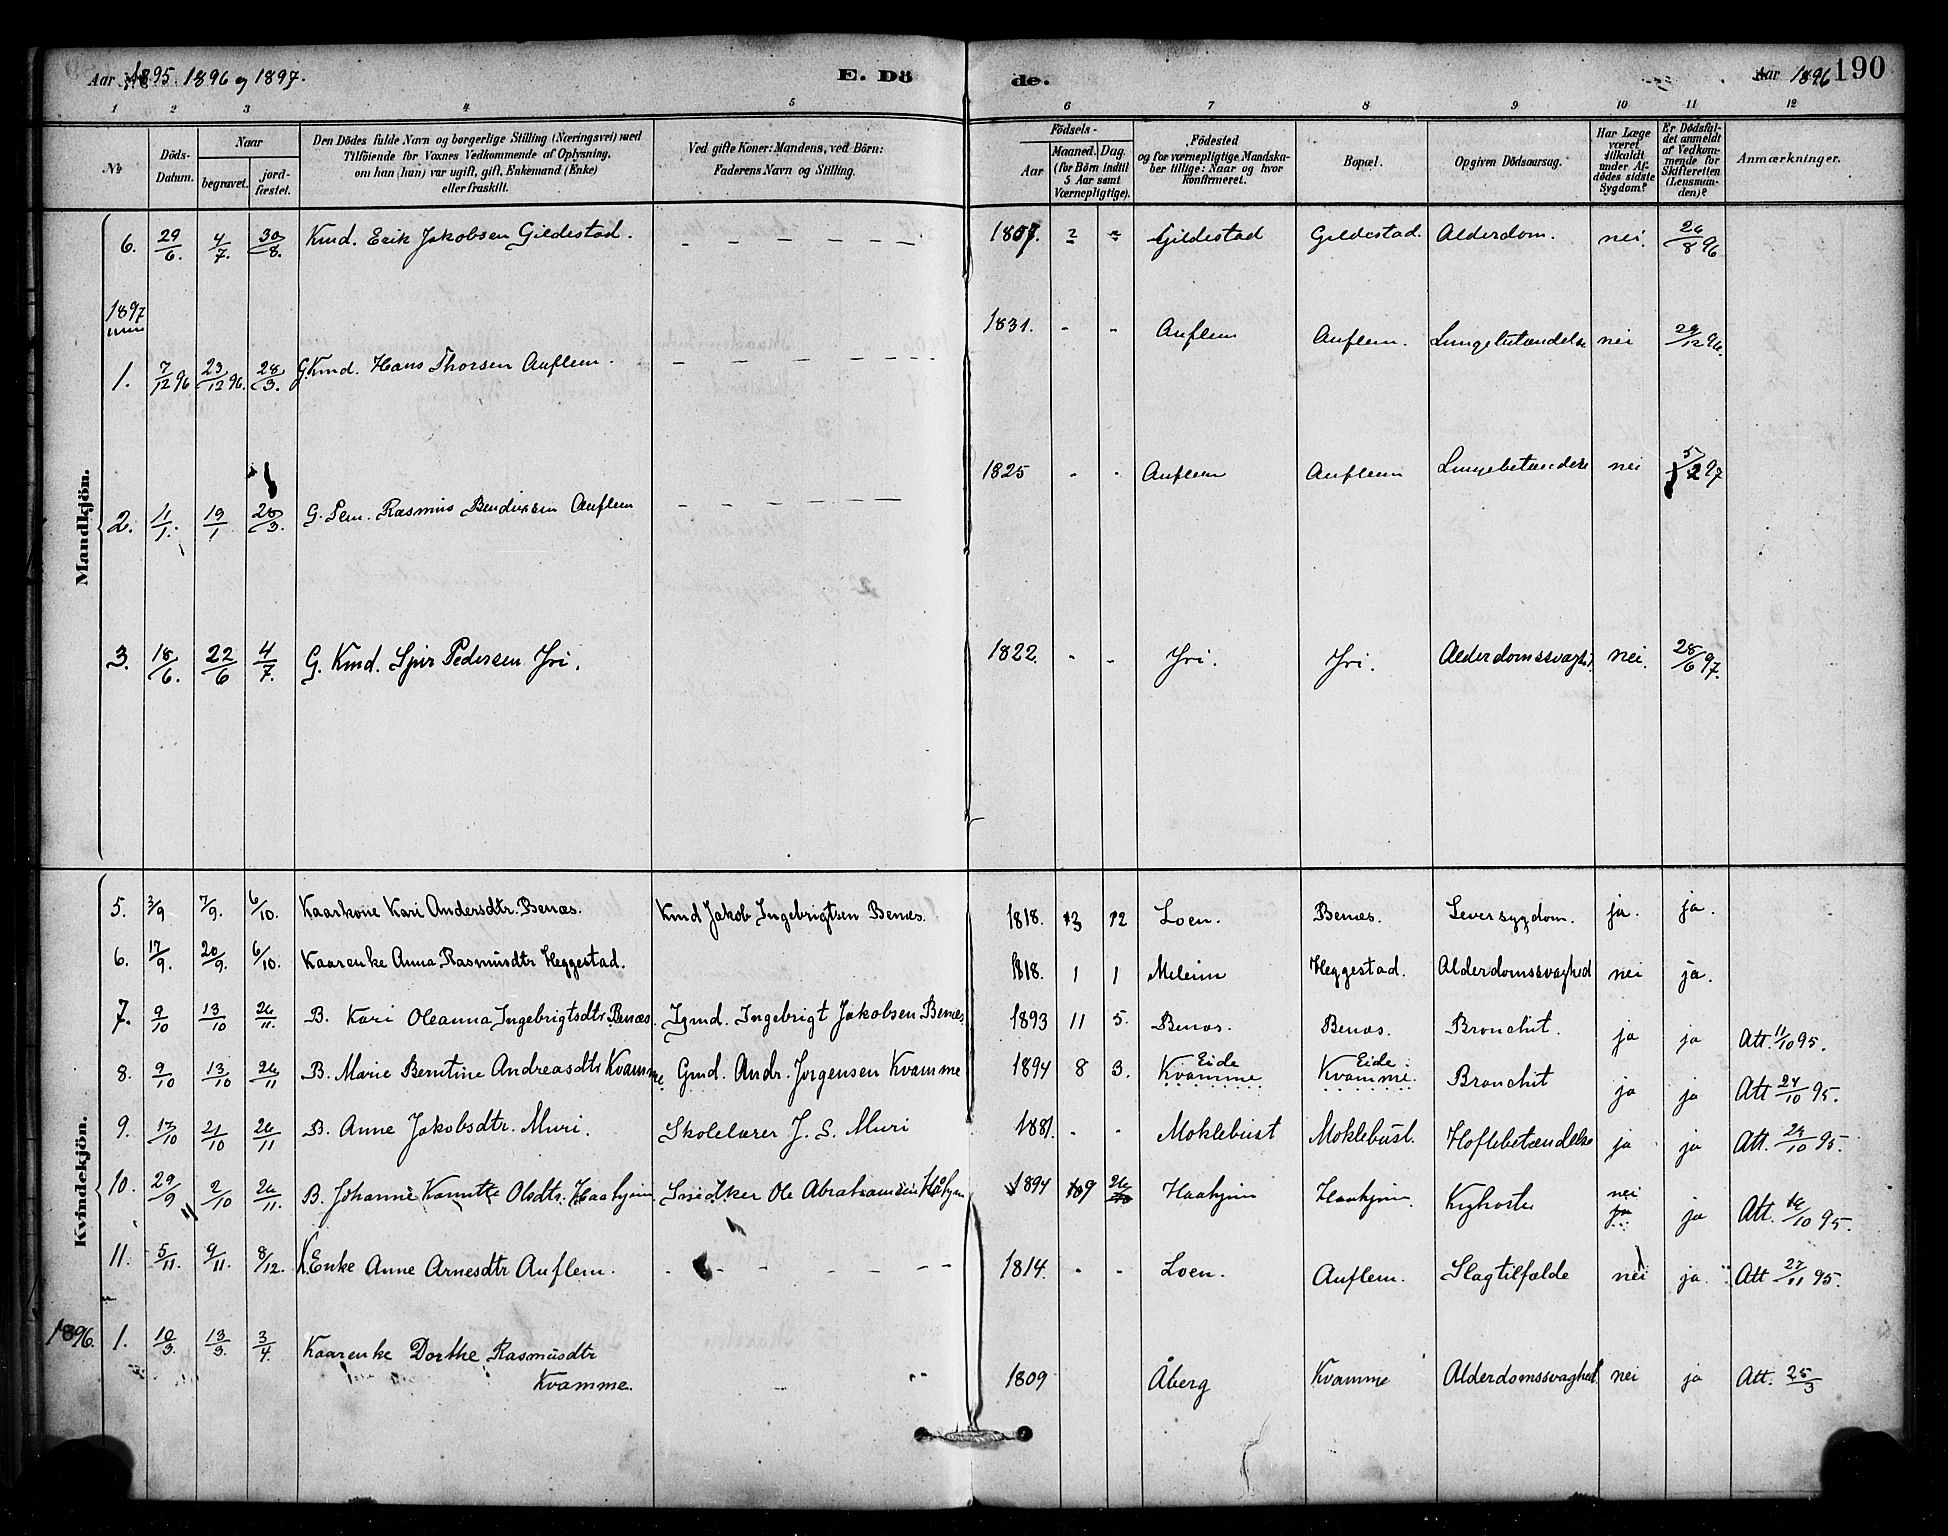 Aar 1895. 1896 og 1897.
E. Dö
de.
Aar 1896
190
1 2 3 4 5 6 7 8 9 10 11 12
No
Döds-Datum.
Naar
begravet.
jordfæstet.
Den Dödes fulde Navn og borgerlige Stilling (Næringsvei) med
Tilföiende for Voxnes Vedkommende af Oplysning,
om han (hun) var ugift, gift, Enkemand (Enke)
eller fraskilt.
Ved gifte Koner: Mandens, ved Börn:
Faderens Navn og Stilling.
Födsels-
Aar
Maaned. Dag.
(for Börn indtil
5 Aar samt
Værnepligtige).
Födested
og for værnepligtige Mandskaber tillige: Naar og hvor
konfirmeret.
Bopæl.
Opgiven Dödsaarsag.
Har Læge
været
tilkaldt
under Afdödes sidste
Sygdom?
Er Dödsfaldet anmeldt
af Vedkommende for
Skifteretten
(Lensmanden)?
Anmærkninger.
Mandkjön.
6. 29/6. 4/7. 30/8. Kmd. Erik Jakobsen Gildestad. - - - - - - 1807. Gildestad Gildestad. Alderdom. nei. 26/8 96
1897
1. 7/12 96 23/12 96. 28/3. G.Kmd. Hans Thorsen Auflem. - - - - - - 1831. - - Auflem Auflem. Lungebetændelse nei 29/12 96.
2. 11/1. 19/1 28/3. G. Rasmus Bendixsen Auflem - - - - - - 1825 - - Auflem Auflem Lungebetændelse nei 5/2 97
3. 18/6. 22/6 4/7. G. Kmd. Pedersen Yri. 1822. - - Yri. Yri. Alderdomssvaghd. nei. 28/6 97.
Kvindekjön.
5. 3/9 7/9. 6/10. Kaarkone Kari Andersdtr. Benæs. Kmd Jakob Ingebrigtsen Benæs. 1818. 12 Loen. Benæs. Leversygdom. ja. ja.
6. 17/9. 20/9. 6/10. Kaarenke Anna Rasmusdtr Heggestad. 1818. 1 1 Meleim Heggestad. Alderdomssvaghed nei ja.
7. 9/10 13/10 26/11. B. Kari Oleanna Ingebrigtsdtr. Benæs. Ingebrigt Jakobsen Benæs. 1893 11 5. Benæs. Benæs. Bronchit. ja ja Att. 11/10 95.
8. 9/10 13/10 26/11 B. Marie Berntine Andreasdtr Kvamme. Gmd. Andr. Jørgensen Kvamme 1894 8 3. Eide Kvamme Eide Kvamme. Bronchit ja ja Att 24/10 95.
9. 17/10 21/10 26/11 B. Anne Jakobsdtr. Muri. Skolelærer J. S. Muri 1881. - - Moklebust Moklebust. Hoftebetændelse ja ja Att. 29/10 95.
10. 29/9 2/10 26/11. B. Johanne Olsdtr. Haahjem Snedker Ole Abrahamsen 1894 9 26 Haahjem Haahjem. Kighoste nei ja ja Att. 16/10 95.
11. 5/11. 9/11. 8/12. K.Enke Anne Arnesdtr Auflem. - - - - - - 1814. - - Loen. Auflem. Slagtilfælde nei ja. Att 27/11 95.
1896. 1. 10/3. 13/3. 3/4 Kaarenke Dorthe Rasmusdtr
Kvamme. 1809 Åberg Kvamme Alderdomssvaghed nei ja Att. 25/3